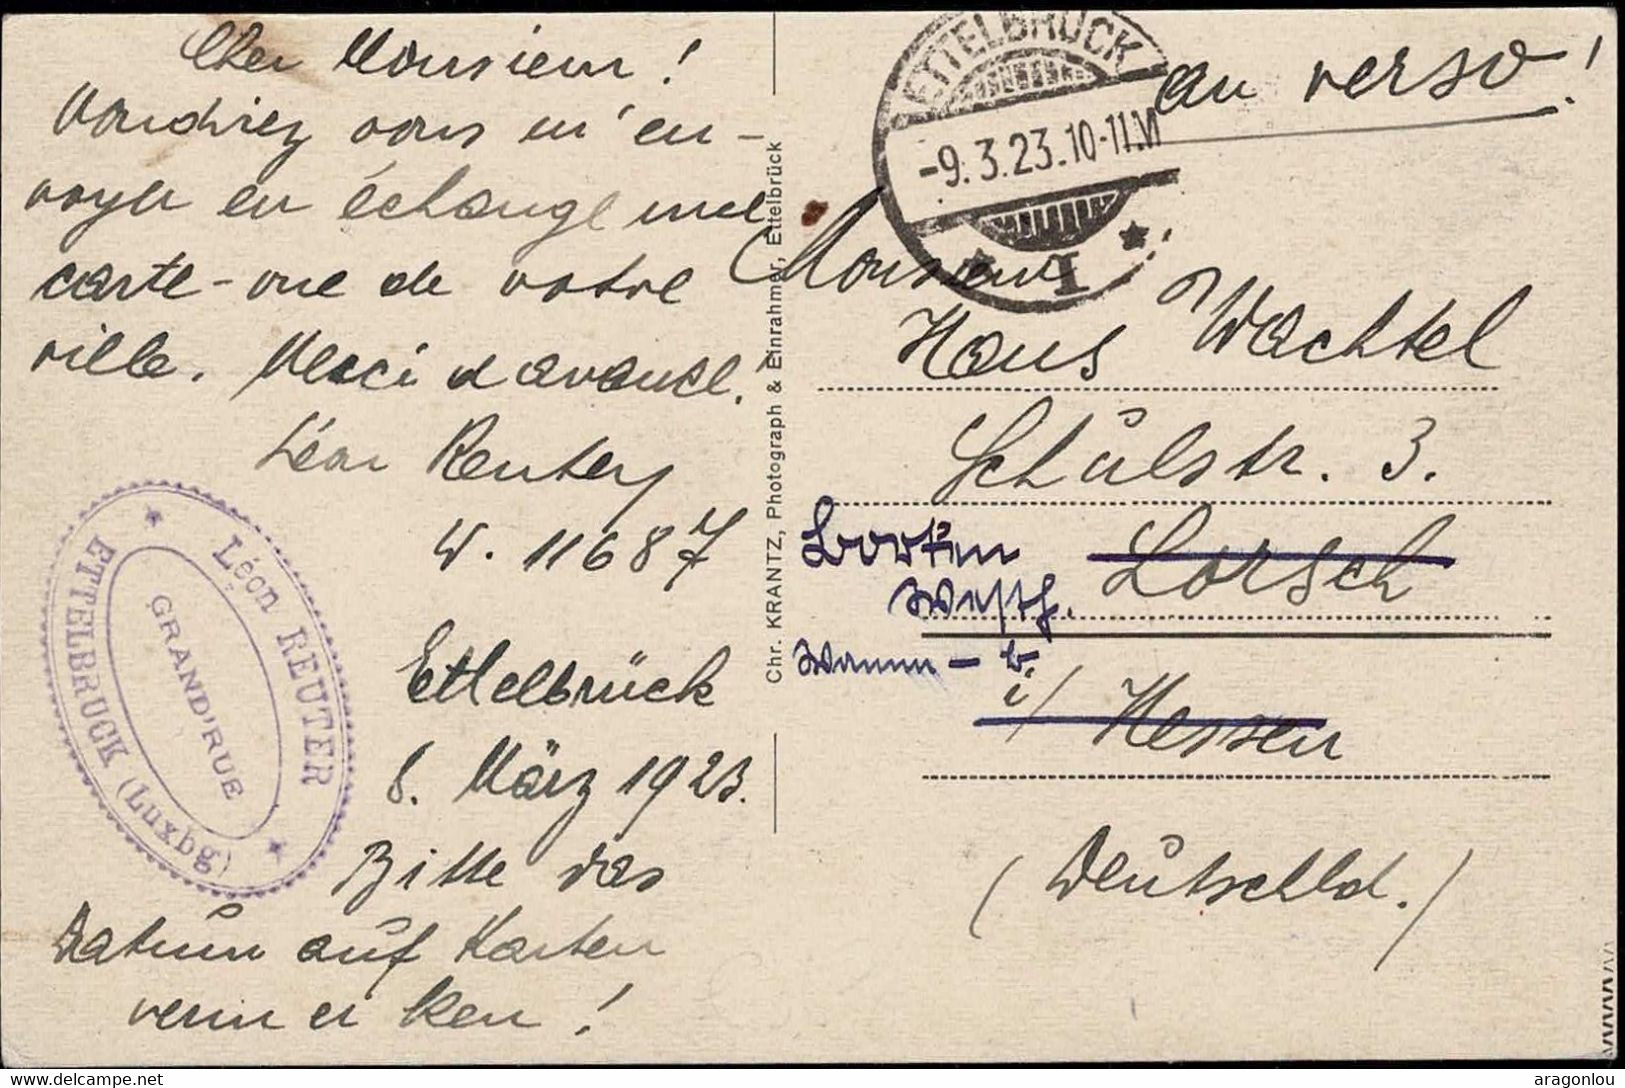 Cher Monsieur !
Voudriez vous m'en-
voyer en échange une
carte-vue de votre
ville. Merci d'avance.
Léon Reuter
W. 11687
Ettelbrück
8. März 1923.
Bitte das
Datum auf Karten
Léon REUTER
GRAND'RUE
ETTELBRUCK (Luxbg)
Chr. KRANTZ, Photograph & Einrahmer, Ettelbrück
ETTELBRÜCK
-9.3.23.10-11.V
I
au verso!
Monsieur
Hans Wachtel
Schulstr. 3.
Lorsch
Borken
Westf.
i/ Hessen
(Deutschld.)
aragonlou